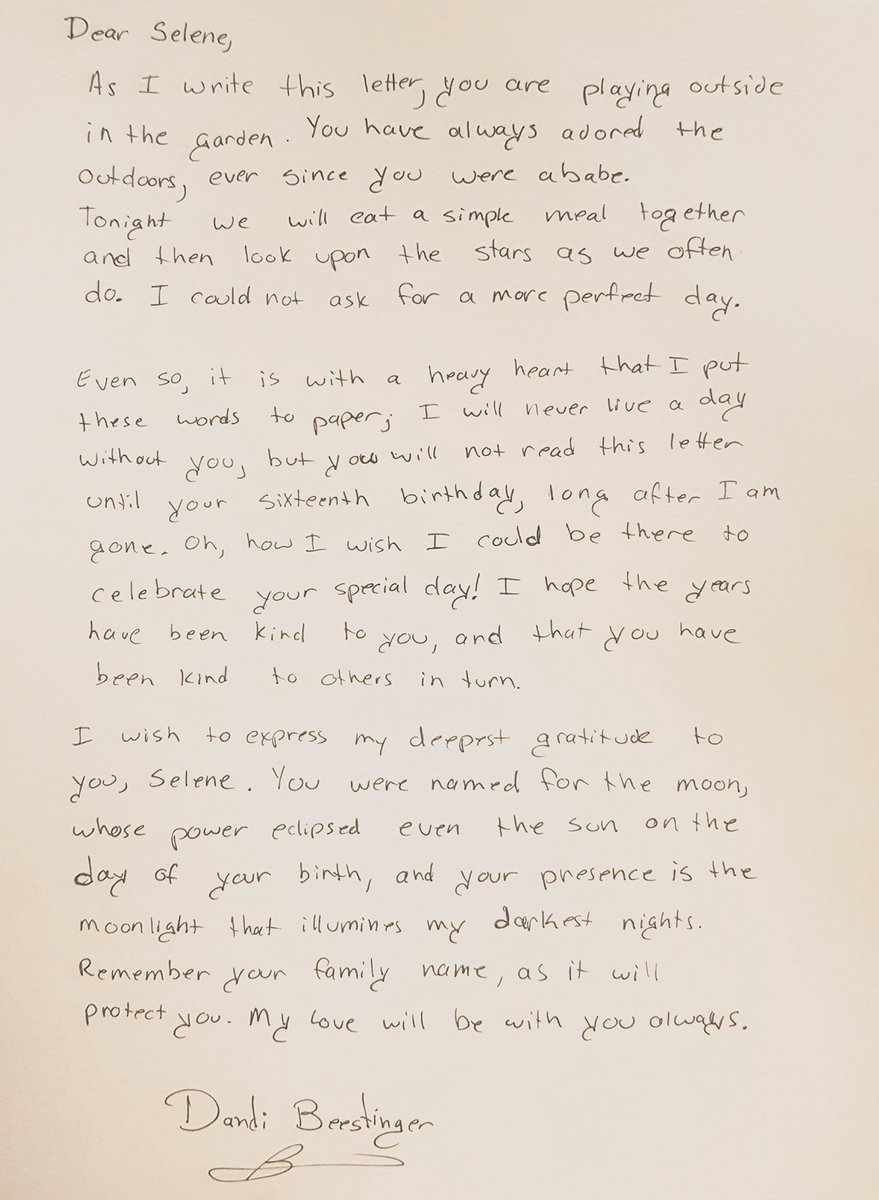 Dear Selene,
As I write this letter, you are playing outside
in the garden. You have always adored the
outdoors, ever since you were a babe.
Tonight we will eat a simple meal together
and then look upon the stars as we often
do. I could not ask for a more perfect day.
Even so, it is with a heavy heart that I put
these words to paper; I will never live a day
without you, but you will not read this letter
until your sixteenth birthday, long after I am
gone. Oh, how I wish I could be there to
celebrate your special day! I hope the years
have been kind to you, and that you have
been kind to others in turn.
I wish to express my deepest gratitude to
you, Selene. You were named for the moon,
whose power eclipsed even the sun on the
day of your birth, and your presence is the
moonlight that illumines my darkest nights.
Remember your family name, as it will
protect you. My love will be with you always.
Dandi Beestinger
B